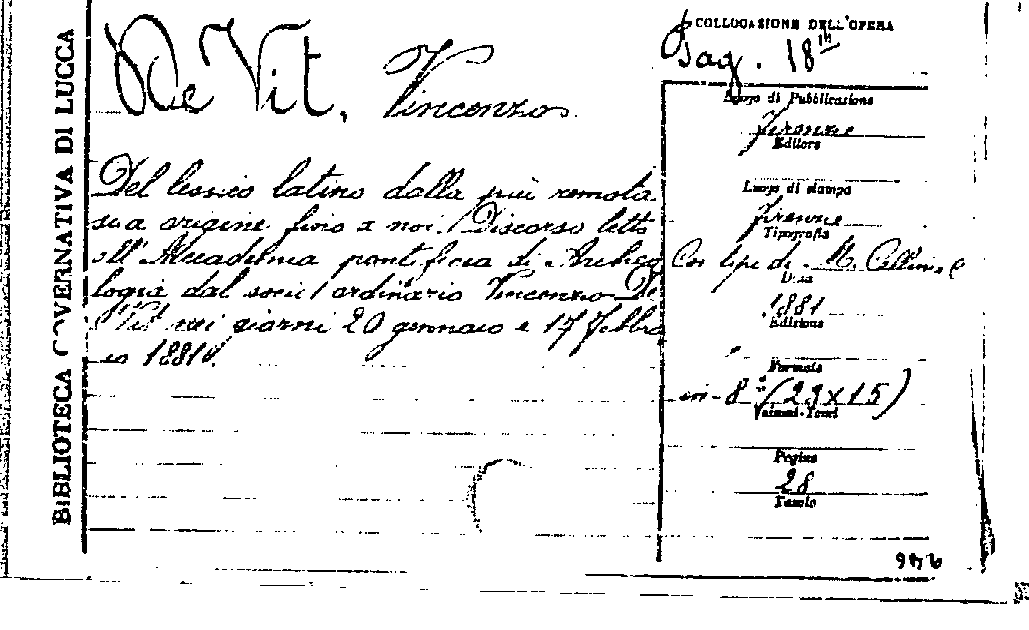 BIBLIOTECA GOVERNATIVA DI LUCCA
De Vit, Vincenzo
Del lessico latino dalla più remota
sua origine fino a noi. Discorso letto
all'Accademia pontificia di Archeo
logia dal socio ordinario Vincenzo De
Vit nei giorni 20 gennaio e 17 febbra
io 1881.
COLLOCASIONE DELL'OPERA
Bag. 18
Luogo di Pubblicazione
Firenze
Editore
Luogo di stampa
Firenze
Tipografia
Coi tipi di M. Cellini e
Data
1881
Edizione
Formato
in-8° (23x15)
Volumi-Tomi
Pagine
28
Tavole